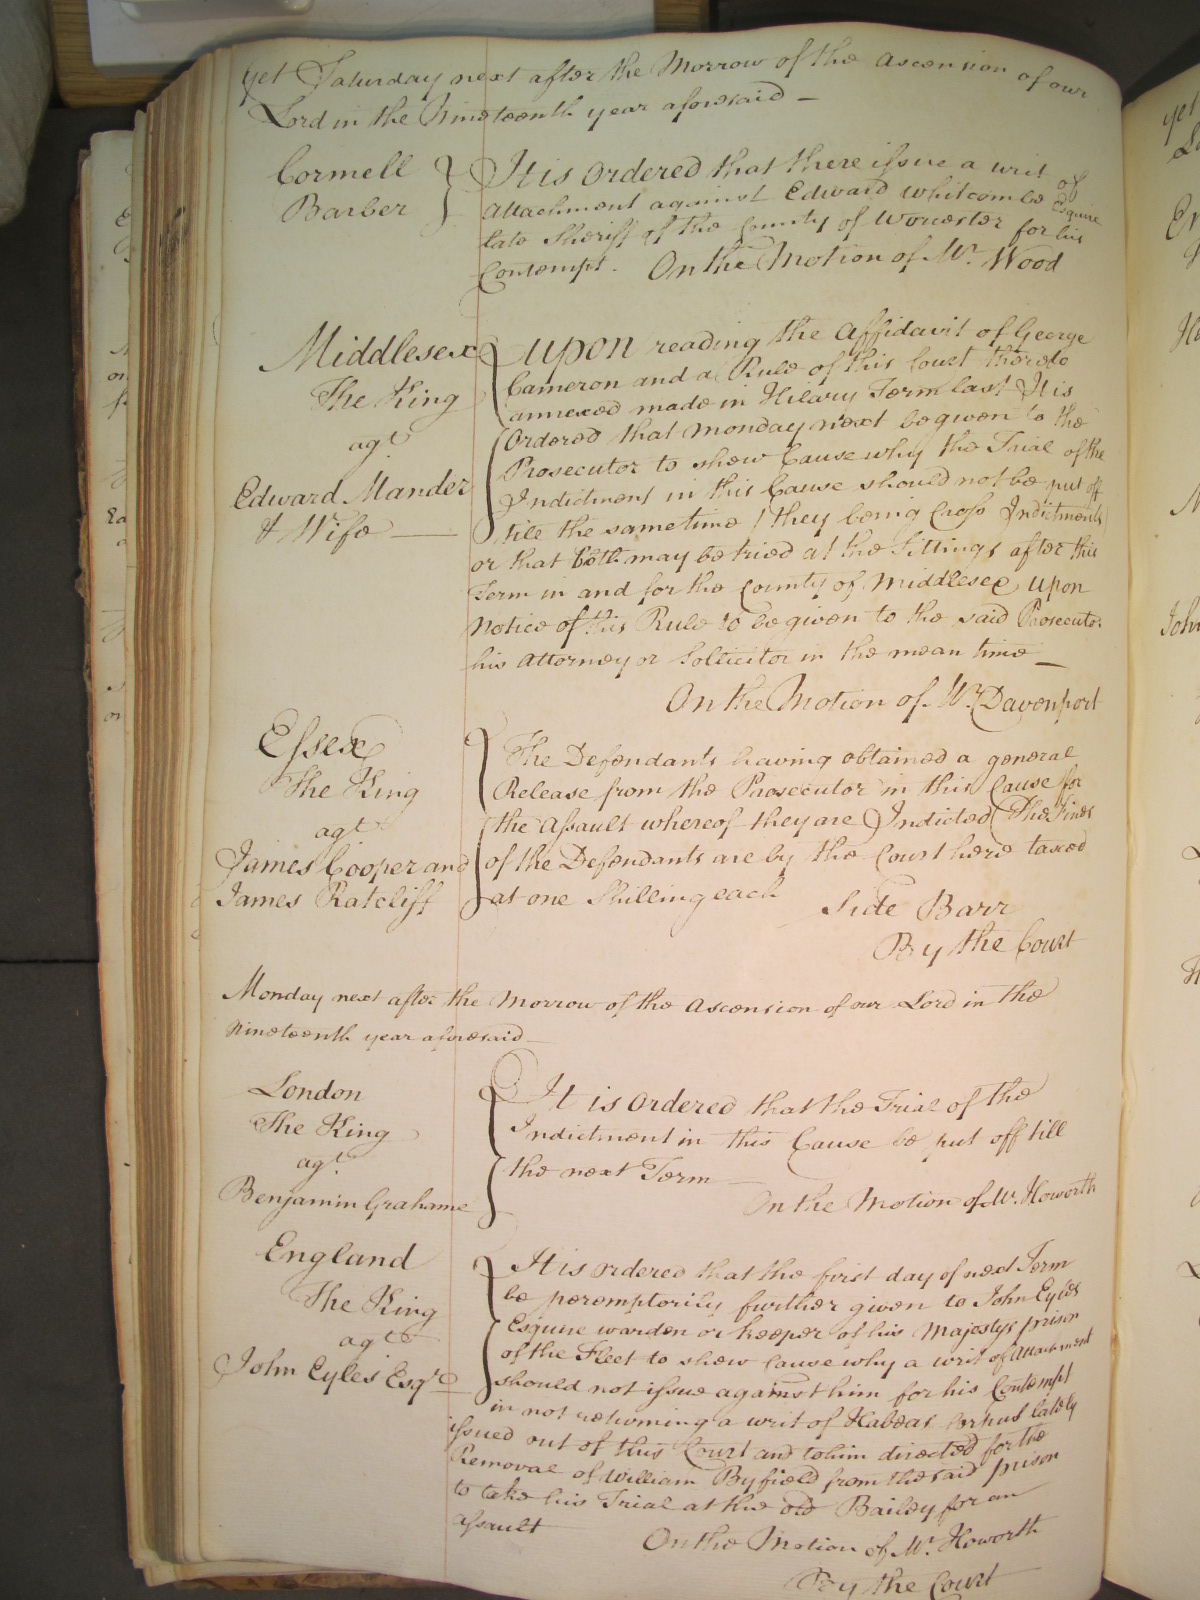 yet Saturday next after the Morrow of the Ascension of our
Lord in the Nineteenth year aforesaid —
Cormell
Barber
It is Ordered that there issue a writ of
Attachment against Edward Whitcombe Esquire
late Sheriff of the County of Worcester for his
Contempt. On the Motion of Mr. Wood
Middlesex
The King
agt
Edward Mander
& Wife —
upon reading the Affidavit of George
Cameron and a Rule of this Court thereto
annexed made in Hilary Term last It is
Ordered that Monday next be given to the
Prosecutor to shew Cause why the Trial of the
Indictment in this Cause should not be put off
till the same time (they being Cross Indictments)
or that both may be tried at the Sittings after this
Term in and for the County of Middlesex upon
Notice of this Rule to be given to the said Prosecutor
his Attorney or Sollicitor in the mean time —
On the Motion of Mr. Davenport
Essex
The King
agt
James Cooper and
James Ratcliff
The Defendants having obtained a general
Release from the Prosecutor in this Cause for
the Assault whereof they are Indicted The Fines
of the Defendants are by the Court here taxed
at one Shilling each
Side Barr
By the Court
Monday next after the Morrow of the Ascension of our Lord in the
Nineteenth year aforesaid —
London
The King
agt
Benjamin Grahame
It is Ordered that the Trial of the
Indictment in this Cause be put off till
the next Term —
On the Motion of Mr. Howorth
England
The King
agt
John Eyles Esqre
It is Ordered that the first day of next Term
be peremptorily further given to John Eyles
Esquire warden or keeper of his Majestys prison
of the Fleet to shew Cause why a writ of Attachment
should not issue against him for his Contempt
in not returning a writ of Habeas Corpus lately
issued out of this Court and to him directed for the
Removal of William Byfield from the said prison
to take his Trial at the old Bailey for an
assault
On the Motion of Mr. Howorth
By the Court